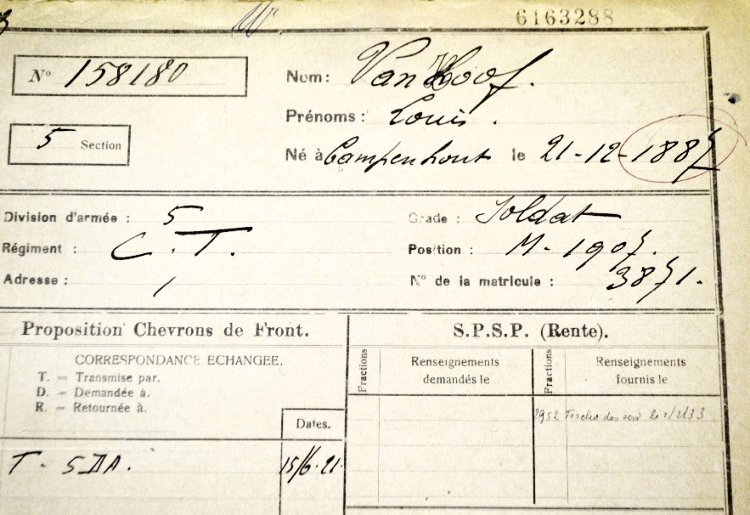 6163288
N° 158180
Nom: Van Hoof.
Prénoms: Louis.
5 Section
Né à Campenhout le 21-12-1887
Division d'armée: 5
Grade: Soldat
Régiment: C.T.
Position: M-1907.
Adresse: /
N° de la matricule: 3871.
Proposition Chevrons de Front.
CORRESPONDANCE ECHANGÉE.
T. = Transmise par.
D. = Demandée à.
R. = Retournée à.
Dates.
T - 5DA. 15/6.21.
S.P.S.P. (Rente).
Fractions
Renseignements
demandés le
Fractions
Renseignements
fournis le
le 2/2/33